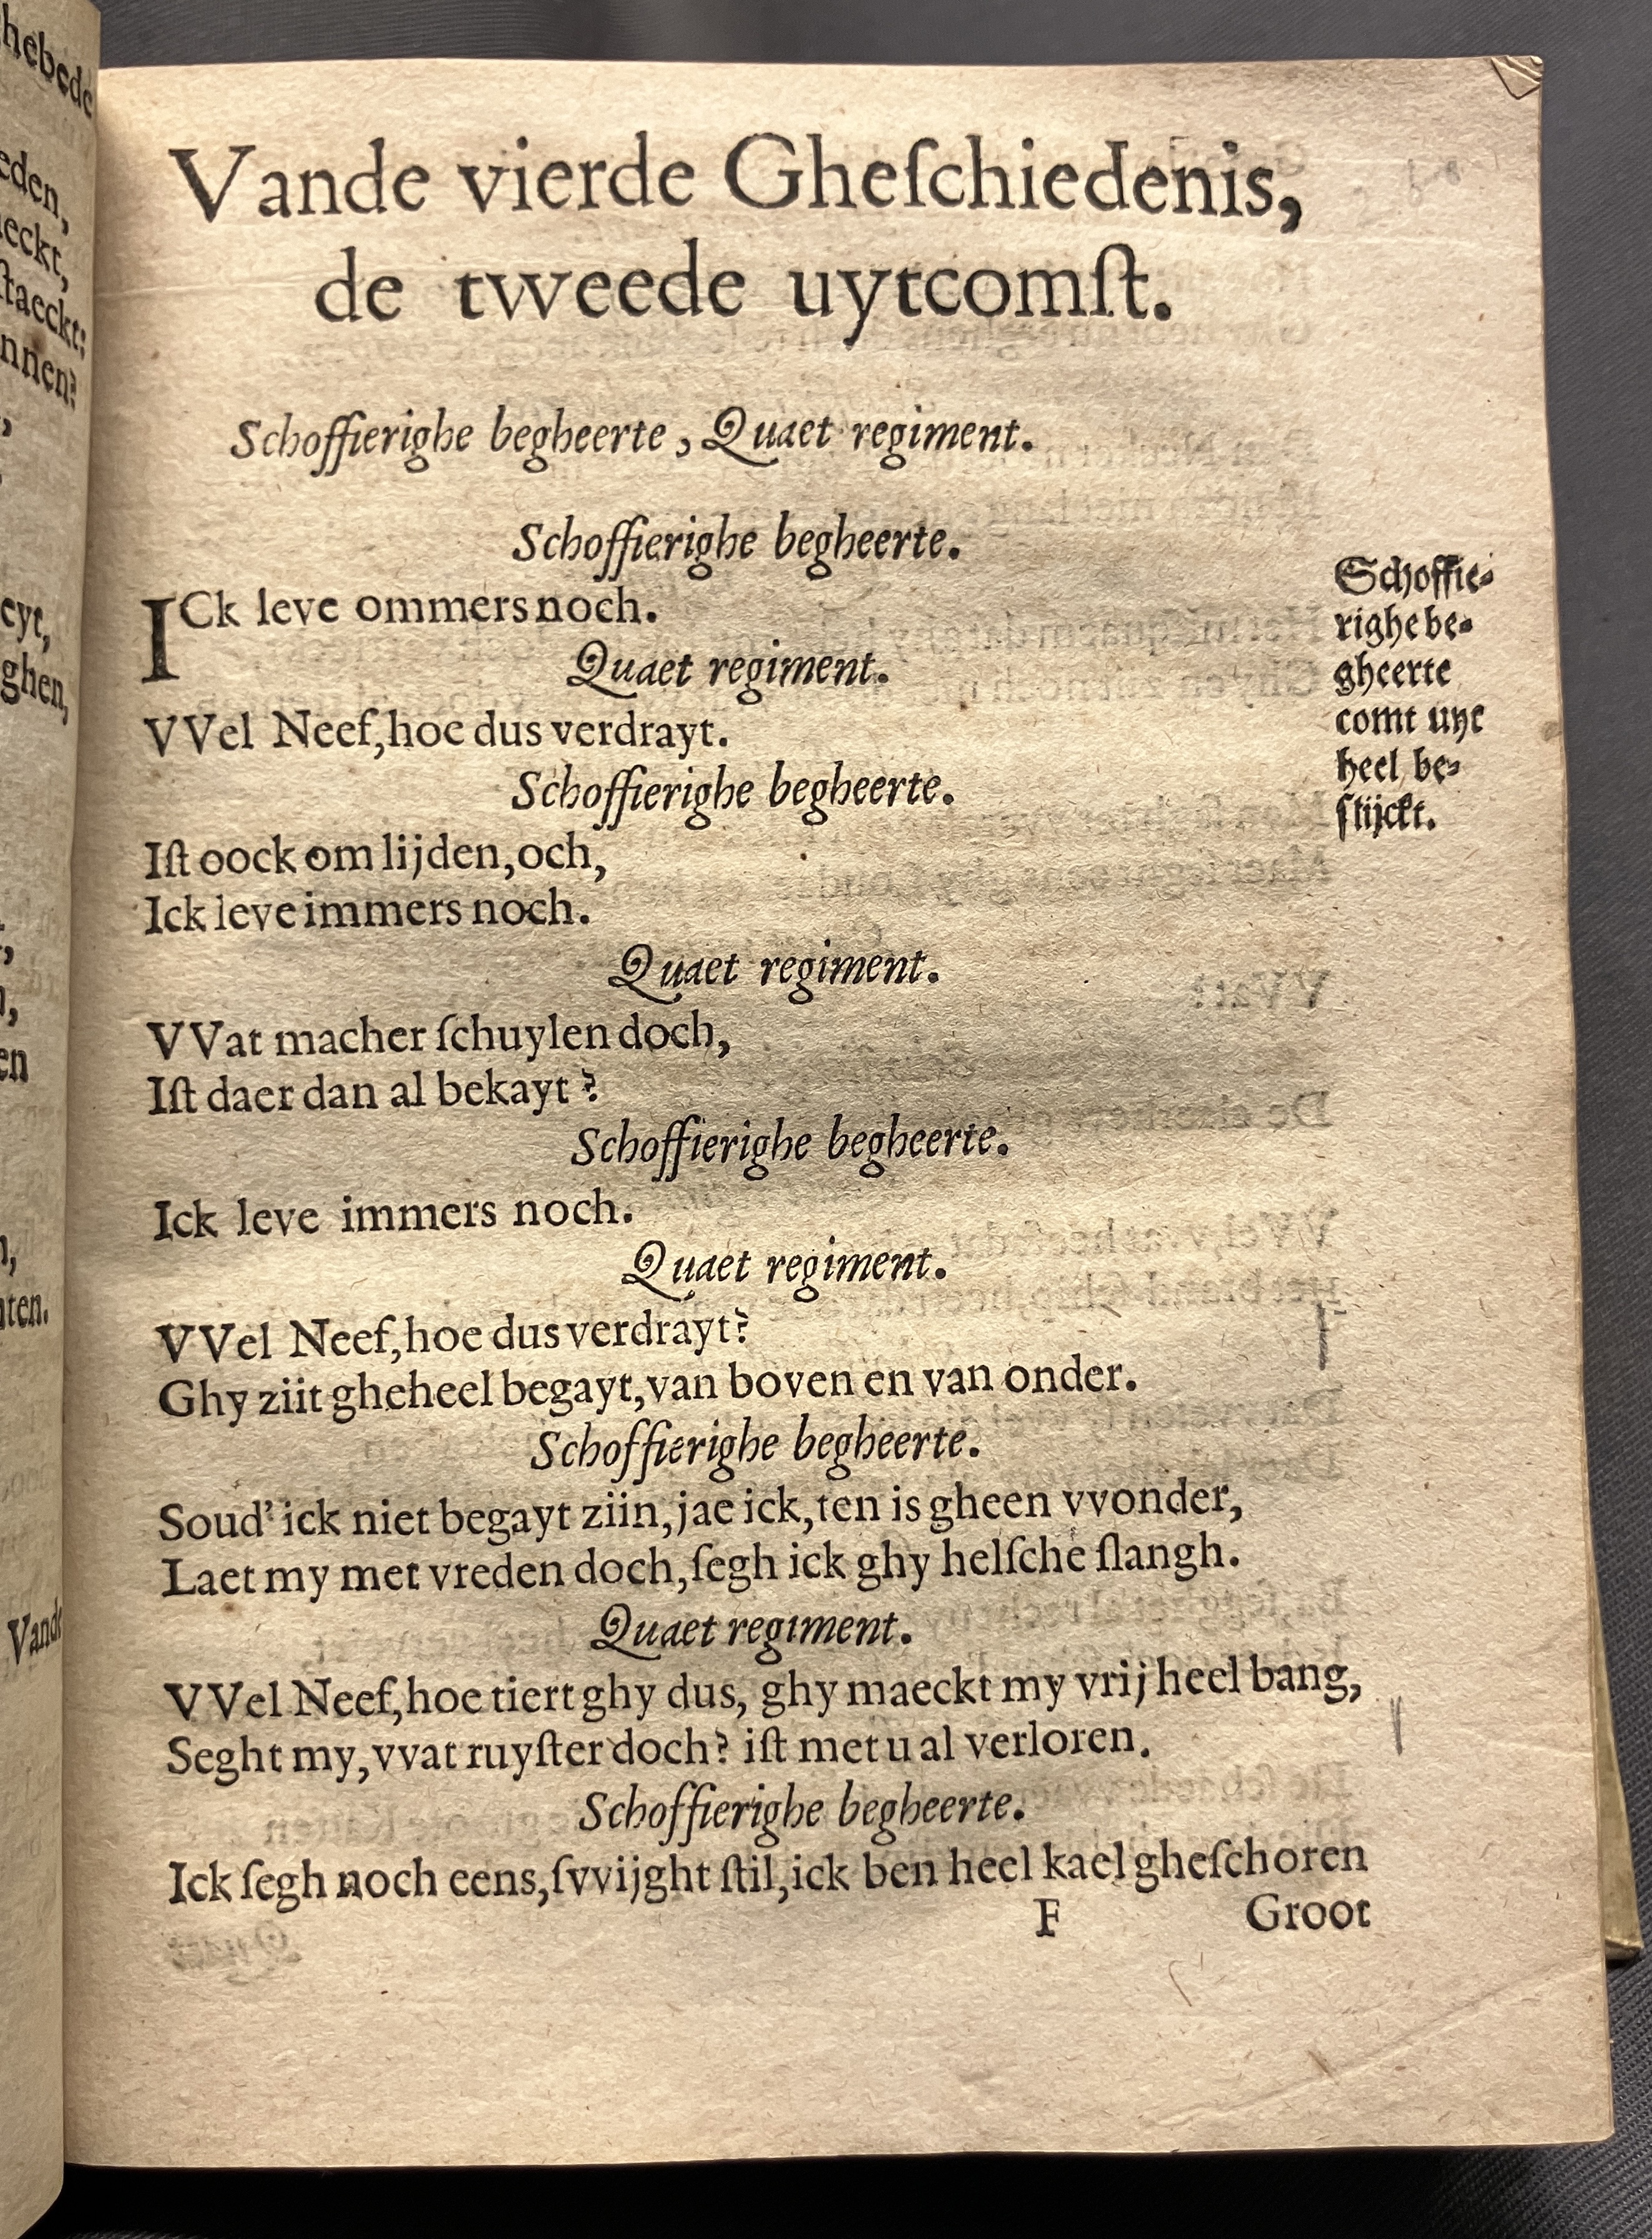 Vande vierde Gheſchiedenis,
de tvveede uytcomſt.
Schoffierighe begheerte, Quaet regiment.
Schoffierighe begheerte.
ICk leve ommers noch.
Quaet regiment.
VVel Neef, hoe dus verdrayt.
Schoffierighe begheerte.
Iſt oock om lijden, och,
Ick leve immers noch.
Quaet regiment.
VVat macher ſchuylen doch,
Iſt daer dan al bekayt?
Schoffierighe begheerte.
Ick leve immers noch.
Quaet regiment.
VVel Neef, hoe dus verdrayt?
Ghy ziit gheheel begayt, van boven en van onder.
Schoffierighe begheerte.
Soud' ick niet begayt ziin, jae ick, ten is gheen vvonder,
Laet my met vreden doch, ſegh ick ghy helſche ſlangh.
Quaet regiment.
VVel Neef, hoe tiert ghy dus, ghy maeckt my vrij heel bang,
Seght my, vvat ruyſter doch? iſt met u al verloren.
Schoffierighe begheerte.
Ick ſegh noch eens, ſvvijght ſtil, ick ben heel kael gheſchoren
F Groot
Schoffie-
righe be-
gheerte
comt uyt
heel be-
ſtijckt.
hebede
eden,
eckt,
ſtaeckt:
nnen?
eyt,
ghen,
en
ten.
Vande